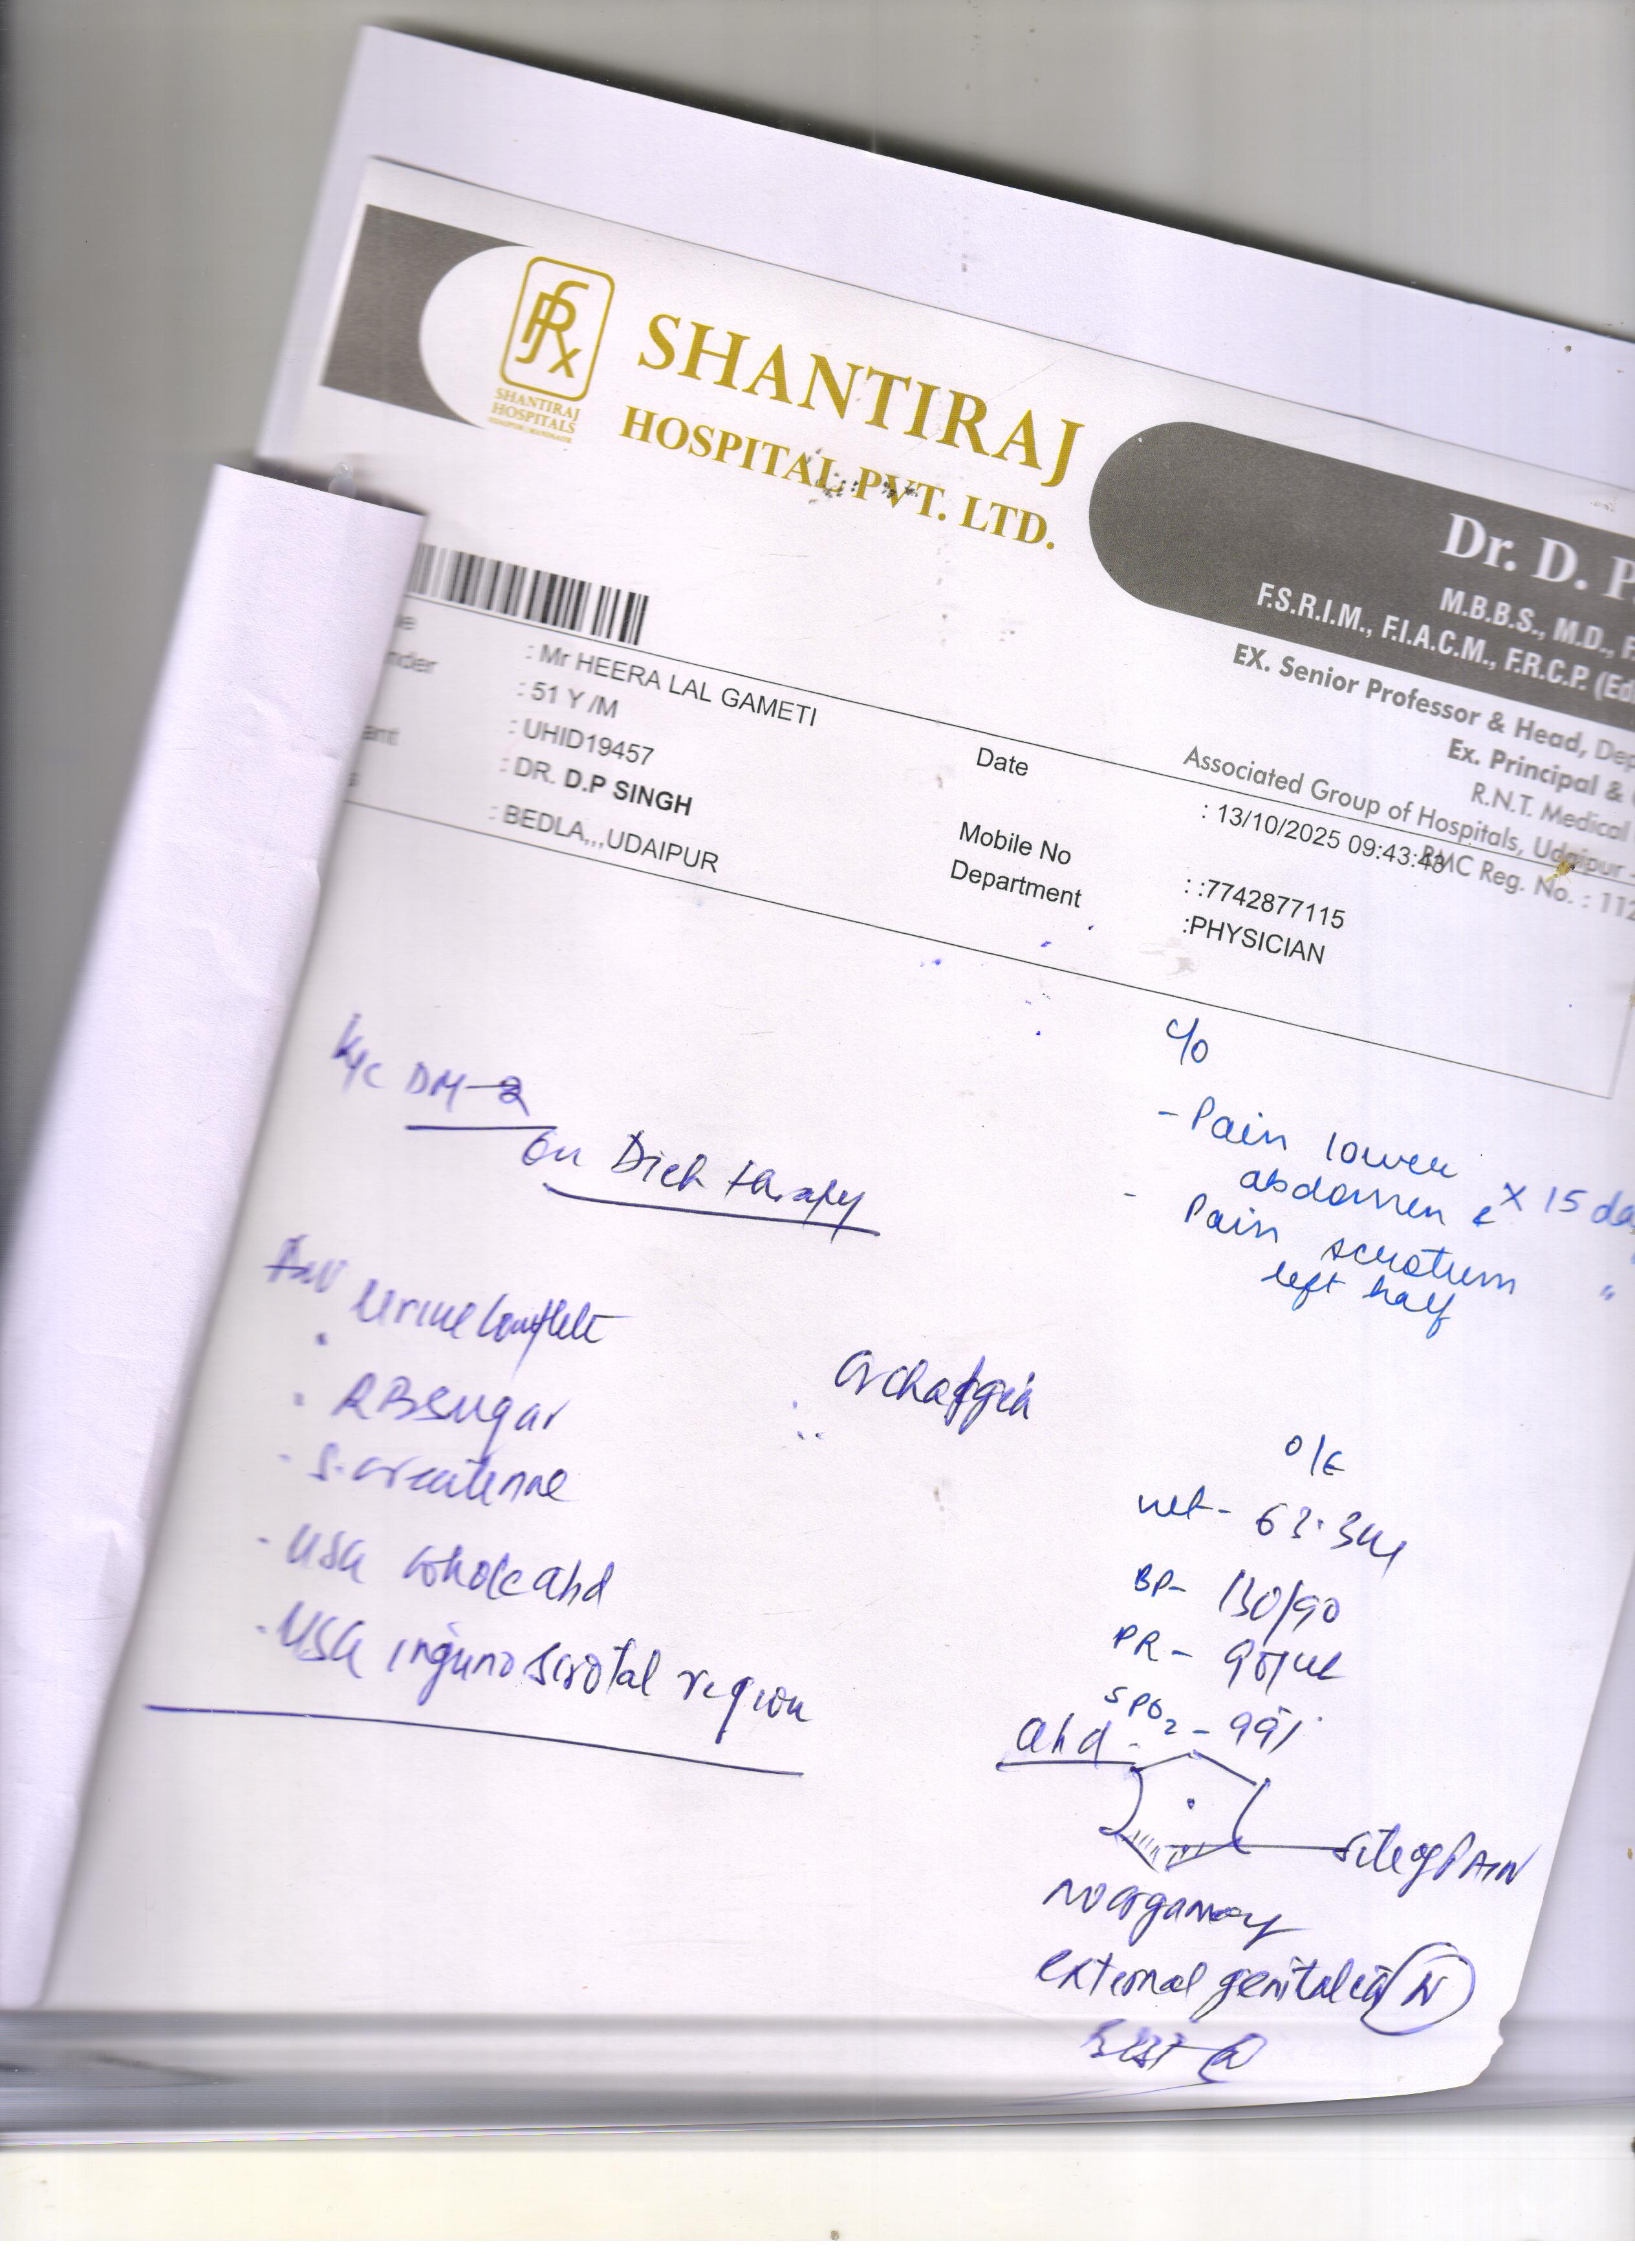 SHANTIRAJ
HOSPITAL PVT. LTD.
SHANTIRAJ
HOSPITALS
Dr. D. P.
M.B.B.S., M.D., F.
F.S.R.I.M., F.I.A.C.M., F.R.C.P. (Ed
EX. Senior Professor & Head, Dep
Ex. Principal &
R.N.T. Medical
Associated Group of Hospitals, Udaipur
RMC Reg. No. : 112
: Mr HEERA LAL GAMETI
nder : 51 Y /M
: UHID19457
ant : DR. D.P SINGH
s : BEDLA,,,UDAIPUR
Date : 13/10/2025 09:43:43
Mobile No : :7742877115
Department :PHYSICIAN
K/c DM-2
on Diet therapy
Urine Complete
RBSugar
S. creatinine
USG whole abd
USG inguno scrotal region
c/o
- Pain lower
abdomen x 15 da
- Pain scrotum "
left half
O/E
wt - 63.3
BP- 130/90
PR - 90/
SPO2 - 99%
abd -
site of PAIN
no organomegaly
external genitalia N